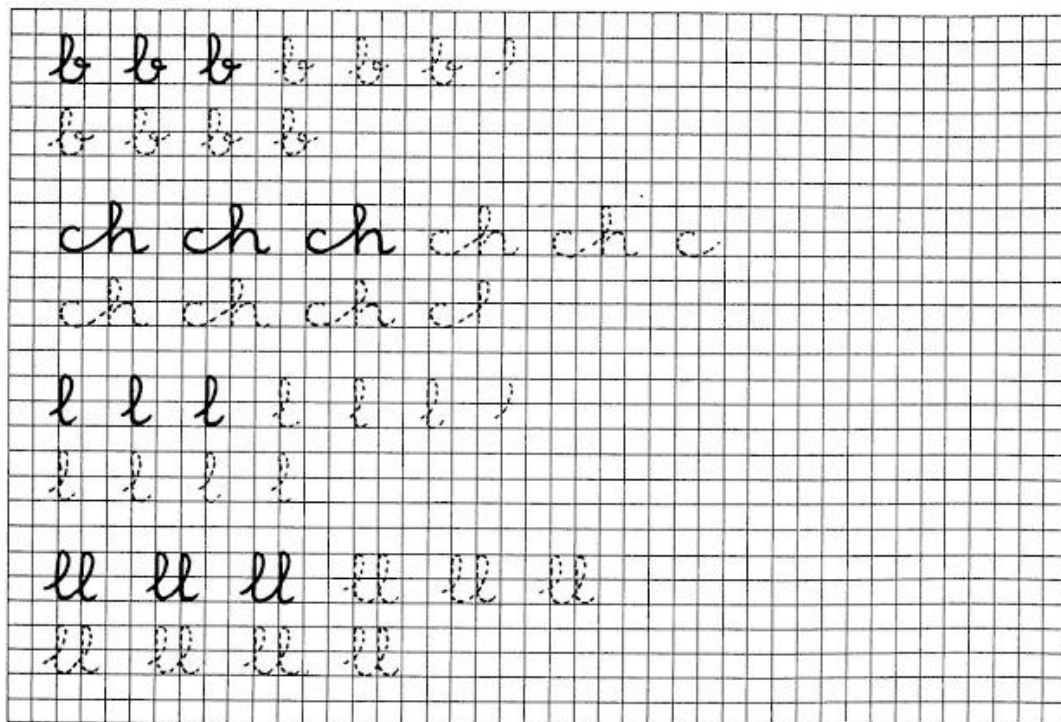 b b b b b b
b b b b
ch ch ch ch ch c
ch ch ch c
l l l l l l
l l l l
ll ll ll ll ll ll
ll ll ll ll